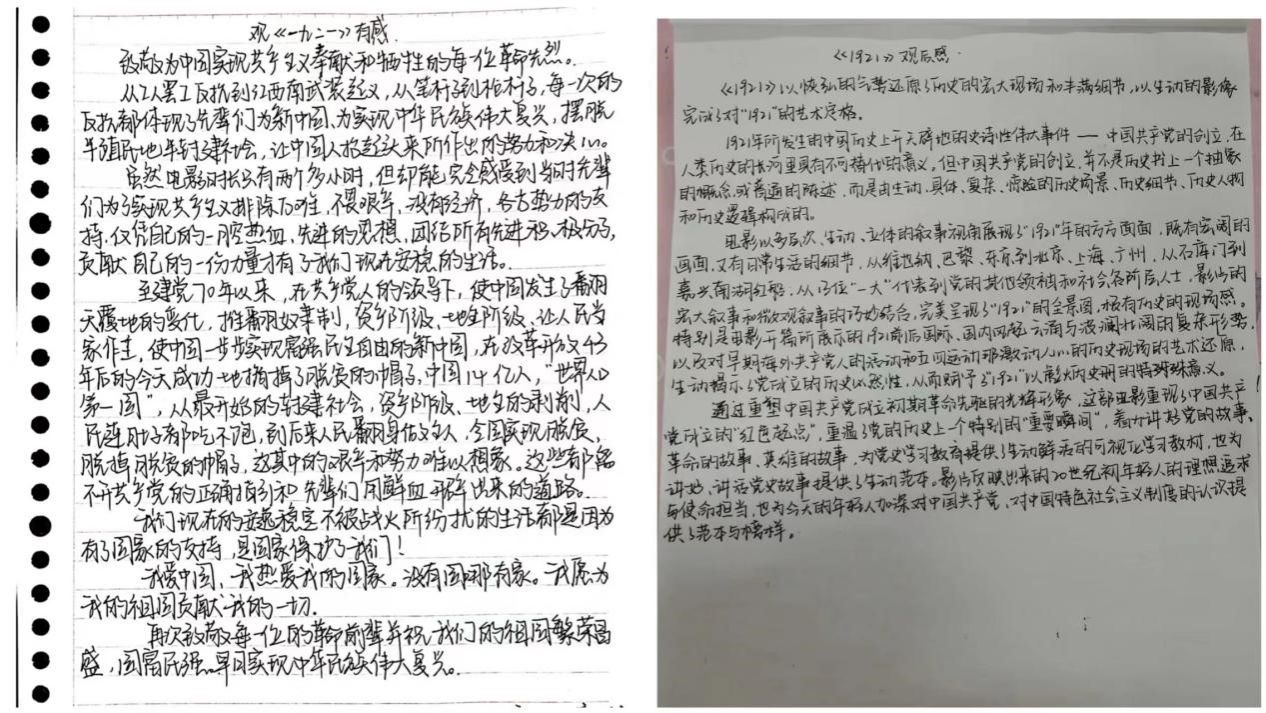 观《一九二一》有感
致敬为中国实现共产主义奉献和牺牲的每一位革命先烈。
从工人罢工反抗到江西南武装起义,从笔杆子到枪杆子,每一次的
反抗都体现了先辈们为新中国,为实现中华民族伟大复兴,摆脱
半殖民地半封建社会,让中国人抬起头来所作出的努力和决心。
虽然电影时长只有两个多小时,但却能完全感受到当时先辈
们为了实现共产主义排除万难,不畏艰辛,没有经济,各方势力的支
持,仅凭自己的一腔热血、先进的思想,团结所有先进积极分子,
贡献自己的一份力量才有了我们现在安稳的生活。
至建党70年以来,在共产党人的领导下,使中国发生了翻
天覆地的变化,推翻奴隶制,资产阶级、地主阶级、让人民当
家作主,使中国一步步实现富强民主自由的新中国,在改革开放43
年后的今天成功地摘掉了脱贫的帽子,中国14亿人,"世界人口
第一国",从最开始的封建社会,资产阶级、地主的剥削,人
民连肚子都吃不饱,到后来人民翻身做主人,全国实现脱贫,
脱掉脱贫的帽子,这其中的艰辛和努力难以想象。这些都离
不开共产党的正确指引和先辈们用鲜血开辟出来的道路。
我们现在的安逸稳定不被战火所纷扰的生活都是因为
有了国家的支持,是国家保护了我们!
我爱中国,我热爱我的国家。没有国哪有家。我愿为
我的祖国贡献我的一切.
再次致敬每一位的革命前辈并祝我们的祖国繁荣昌
盛,国富民强。早日实现中华民族伟大复兴。
《1921》观后感.
《1921》以恢弘的气势还原了历史的宏大现场和丰满细节,以生动的影像
完成了对"1921"的艺术定格。
1921年所发生的中国历史上开天辟地的史诗性伟大事件——中国共产党的创立,在
人类历史的长河里具有不可替代的意义。但中国共产党的创立,并不是历史书上一个抽象
的概念或普通的陈述,而是由生动、具体、复杂、惊险的历史场景、历史细节、历史人物
和历史逻辑构成的。
电影以多层次、生动、立体的叙事视角展现了"1921"年的方方面面,既有宏阔的
画面,又有日常生活的细节,从维也纳、巴黎、东京到北京、上海、广州,从石库门到
嘉兴南湖红船,从13位"一大"代表到党的其他领袖和社会各阶层人士,影片的
宏大叙事和微观叙事的巧妙结合,完美呈现了"1921"的全景图,极有历史的现场感。
特别是电影开篇所展示的1921前后国际、国内风起云涌与波澜壮阔的复杂形势,
以及对早期海外共产党人的活动和五四运动那激动人心的历史现场的艺术还原,
生动揭示了党成立的历史必然性,从而赋予了"1921"以彪炳史册的特殊意义。
通过重塑中国共产党成立初期革命先驱的光辉形象,这部电影重现了中国共产
党成立的"红色起点",重温了党的历史上一个特别的"重要瞬间",着力讲好党的故事、
革命的故事、英雄的故事,为党史学习教育提供了生动鲜活的可视化学习教材,也为
讲好、讲活党史故事提供了生动范本。影片反映出来的20世纪初年轻人的理想追求
与使命担当,也为今天的年轻人加深对中国共产党、对中国特色社会主义制度的认识提
供了范本与榜样。